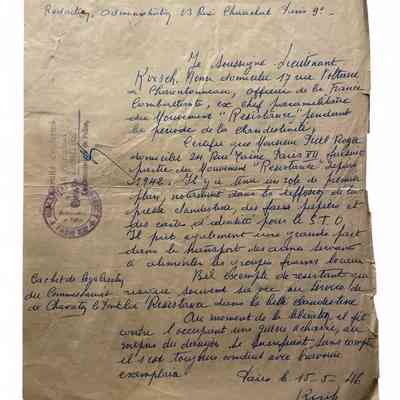 Rédaction, Administration 23 Rue Chauchat Paris 9e
Je Soussigné Lieutenant
Kirsch Henri domicilié 17 rue Voltaire
à Charentonneau, officier de la France
Combattante, ex chef paramilitaire
du Mouvement "Résistance" pendant
la période de la clandestinité,
Certifie que Monsieur Roger
domicilié 24 Rue Paris VII faisait
partie du Mouvement "Résistance" depuis
1942. Il y a tenu un rôle de premier
plan, notamment dans la diffusion de la
presse clandestine des faux papiers et
des cartes d'identité pour le S.T.O,
Il prit également une grande part
dans le transport des armes servant
à alimenter les groupes francs locaux
Bel exemple de résistant qui
risqua souvent sa vie au service de
Résistance dans la lutte clandestine
Cachet de Légalisation
du Commissariat
de Charenton le
Au moment de la libération, il fit
contre l'occupant une guerre acharnée, au
mépris du danger, se sans compter
il s'est toujours conduit avec bravoure
exemplaire.
Paris le 15-5-46
Kirsch